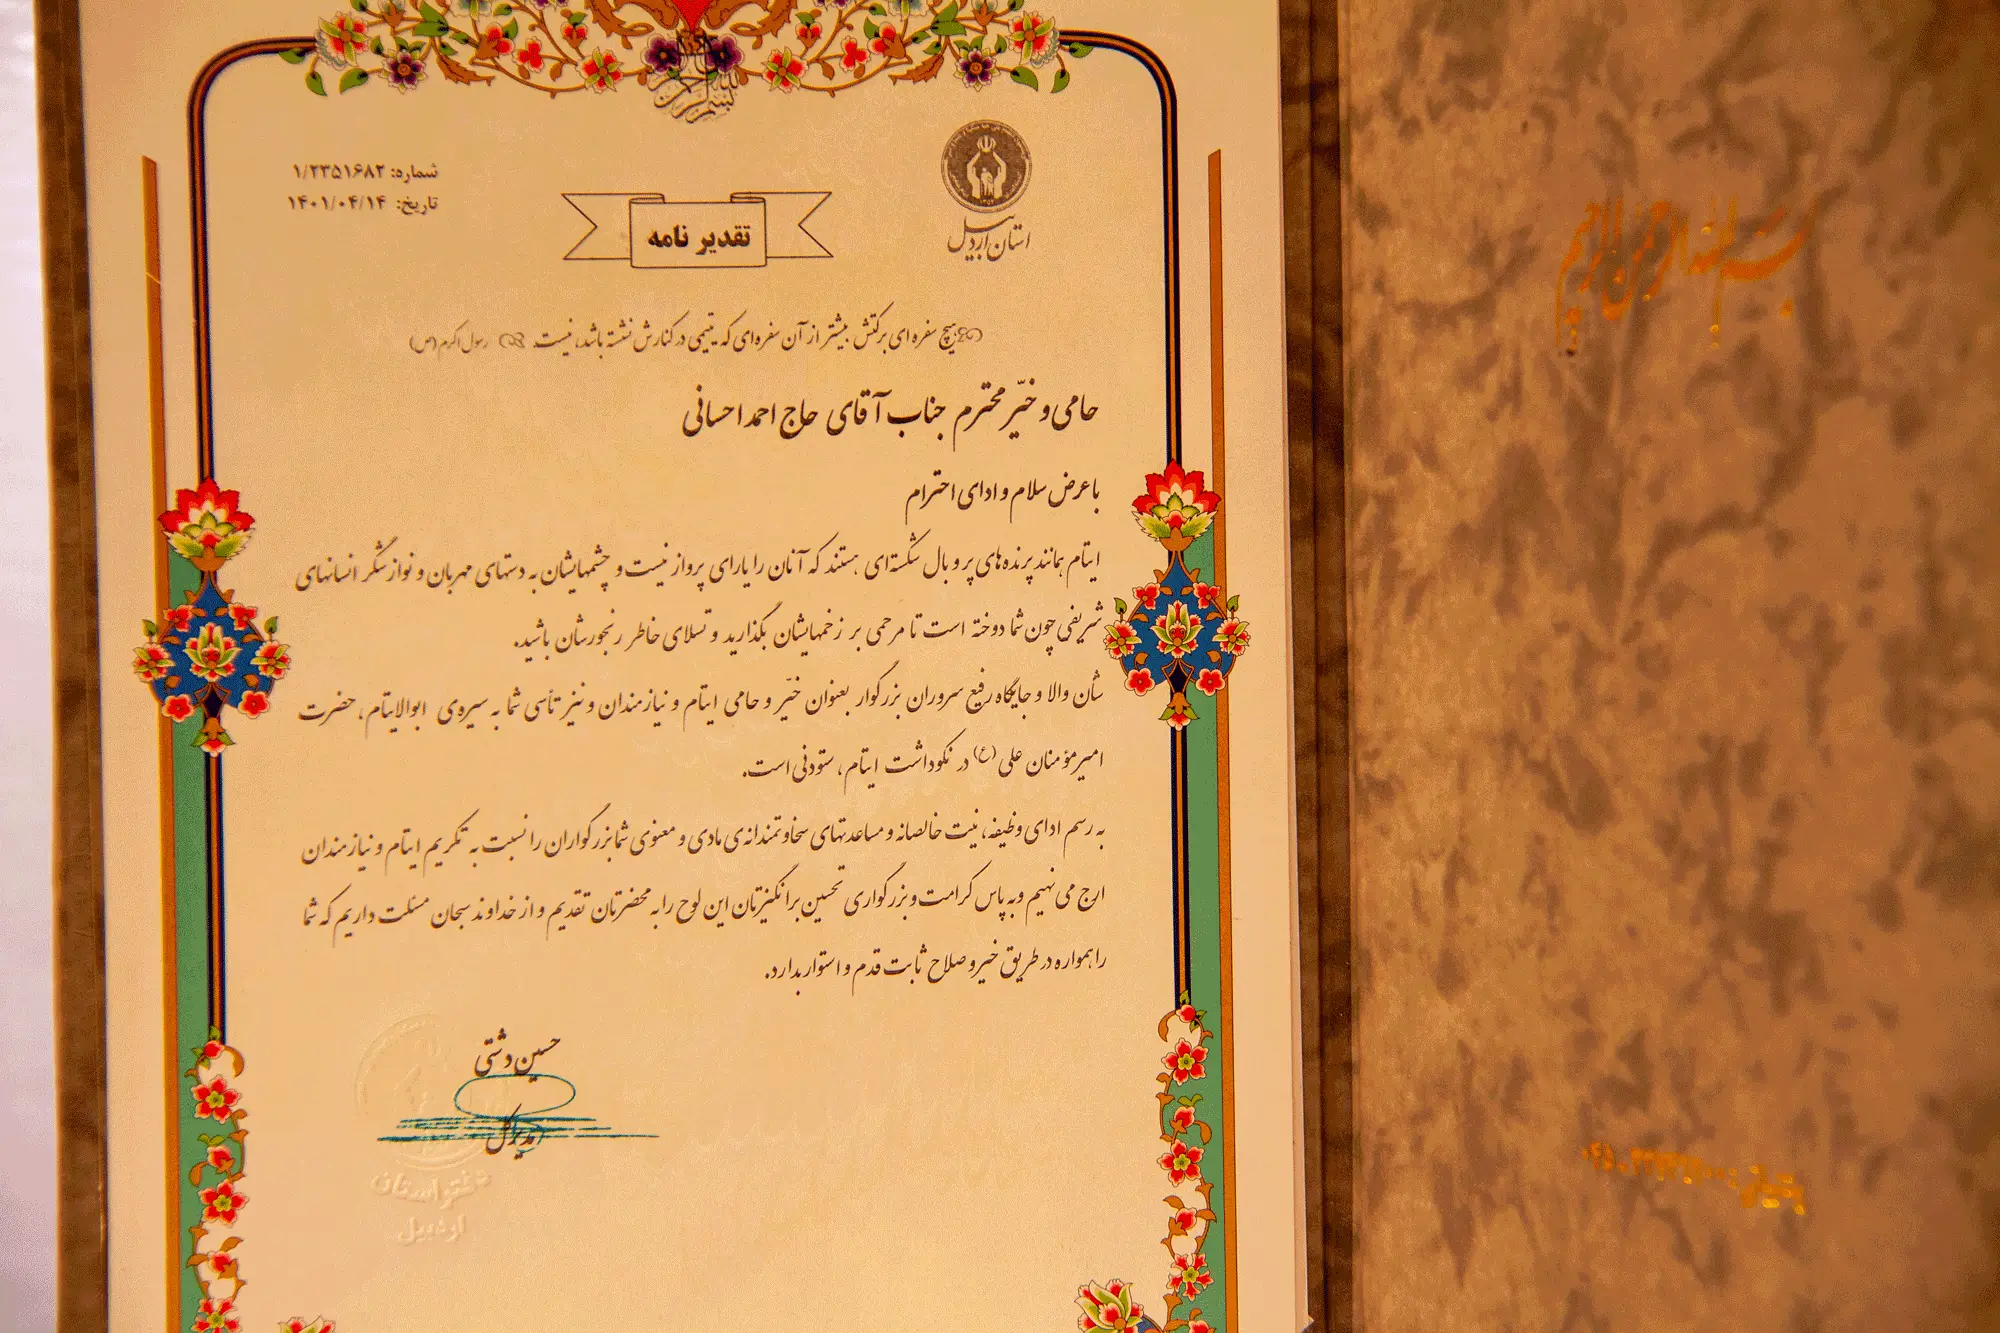 بسم الله الرحمن الرحیم
استان اردبیل
شماره: ۱/۲۳۵۱۶۸۲
تاریخ: ۱۴۰۱/۰۴/۱۴
تقدیر نامه
هیچ سفره ای برکتش بیشتر از آن سفره‌ای که یتیمی در کنارش نشسته باشد، نیست. رسول اکرم (ص)
حامی و خیّر محترم جناب آقای حاج احمد احسانی
با عرض سلام و ادای احترام
ایتام همانند پرنده های پر و بال شکسته‌ای هستند که آنان را یارای پرواز نیست و چشمهایشان به دستهای مهربان و نوازشگر انسانهای
شریفی چون شما دوخته است تا مرحمی بر زخمهایشان بگذارید و تسلای خاطر رنجورشان باشید.
شأن والا و جایگاه رفیع سروران بزرگوار بعنوان خیّر و حامی ایتام و نیازمندان و نیز تأسی شما به سیره‌ی ابوالایتام، حضرت
امیرمؤمنان علی (ع) در نکوداشت ایتام، ستودنی است.
به رسم ادای وظیفه، نیت خالصانه و مساعدتهای سخاوتمندانه‌ی مادی و معنوی شما بزرگواران را نسبت به تکریم ایتام و نیازمندان
ارج می نهیم و به پاس کرامت و بزرگواری تحسین برانگیزتان این لوح را به محضرتان تقدیم و از خداوند سبحان مسئلت داریم که شما
را همواره در طریق خیر و صلاح ثابت قدم و استوار بدارد.
حسین دشتی
مدیرکل
دفتر استان
اردبیل
بسم الله الرحمن الرحیم